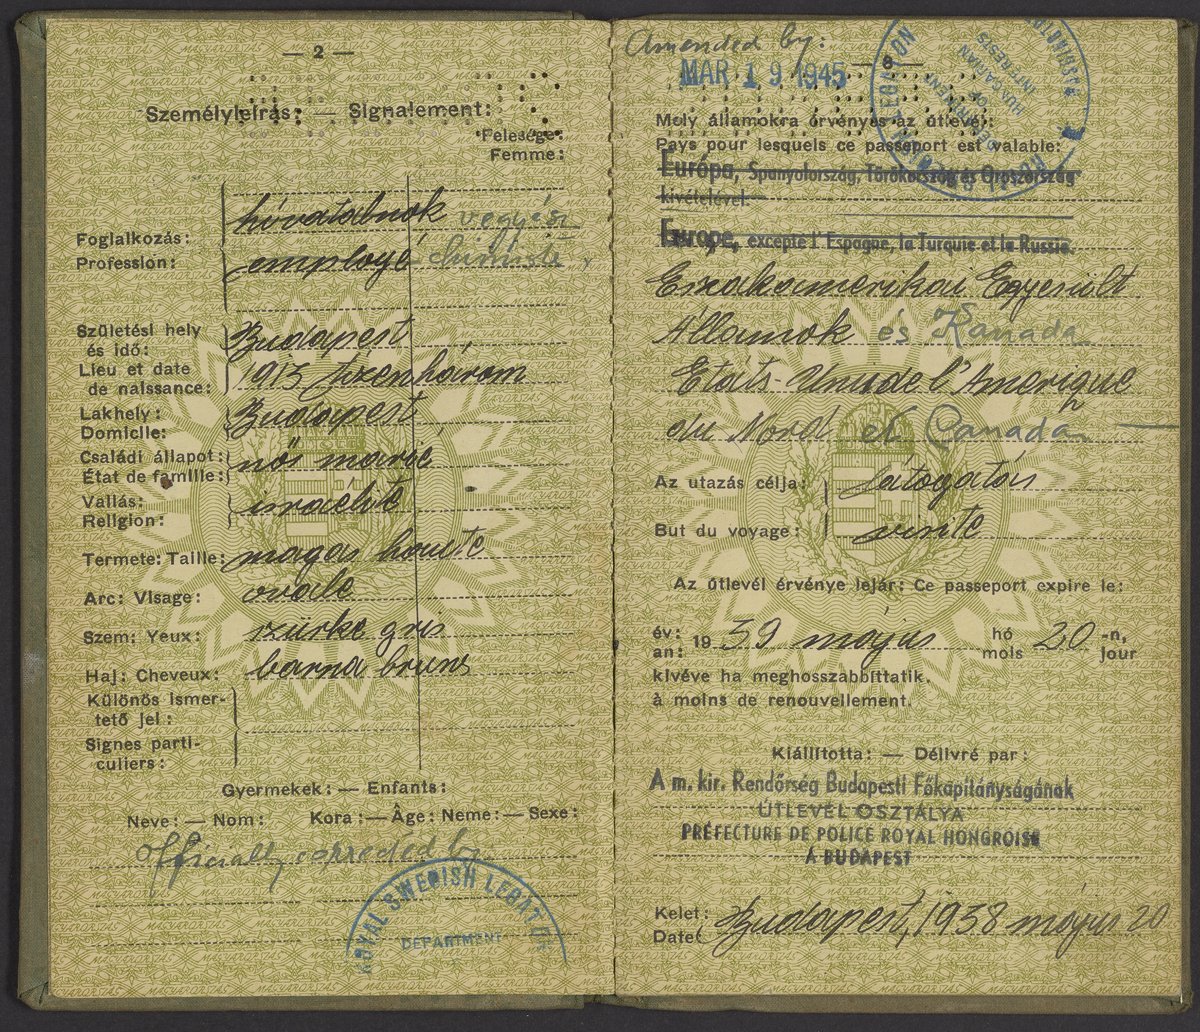 — 2 —
Személyleírás: — Signalement:
Felesége:
Femme:
Foglalkozás:
Profession:
hivatalnok vegyész
employé chimiste
Születési hely
és idő:
Lieu et date
de naissance:
Budapest
1913 tizenhárom
Lakhely:
Domicile:
Budapest
Családi állapot:
État de famille:
nős marié
Vallás:
Religion:
israelite
Termete: Taille: magas haute
Arc: Visage: ovale
Szem: Yeux: szürke gris
Haj: Cheveux: barna bruns
Különös ismer-
tető jel:
Signes parti-
culiers:
Gyermekek: — Enfants:
Neve: — Nom: Kora: — Âge: Neme: — Sexe:
Officially corrected by
ROYAL SWEDISH LEGATION
DEPARTMENT
Amended by:
MAR 19 1945
ROYAL SWEDISH LEGATION
DEPARTMENT
OF
HUNGARIAN
INTERESTS
Mely államokra érvényes az útlevél:
Pays pour lesquels ce passeport est valable:
Európa, Spanyolország, Törökország és Oroszország
kivételével.
Europe, excepté l'Espagne, la Turquie et la Russie.
Északamerikai Egyesült
Államok és Kanada
Etats-Unis de l'Amerique
du Nord et Canada
Az utazás célja: látogatás
But du voyage: visite
Az útlevél érvénye lejár: Ce passeport expire le:
év:
an: 19 39 május hó
mois 20 -n,
jour
kivéve ha meghosszabbíttatik.
à moins de renouvellement.
Kiállította: — Délivré par:
A m. kir. Rendőrség Budapesti Főkapitányságának
ÚTLEVÉL OSZTÁLYA
PRÉFECTURE DE POLICE ROYAL HONGROISE
À BUDAPEST
Kelet:
Date:
Budapest, 1938 május 20